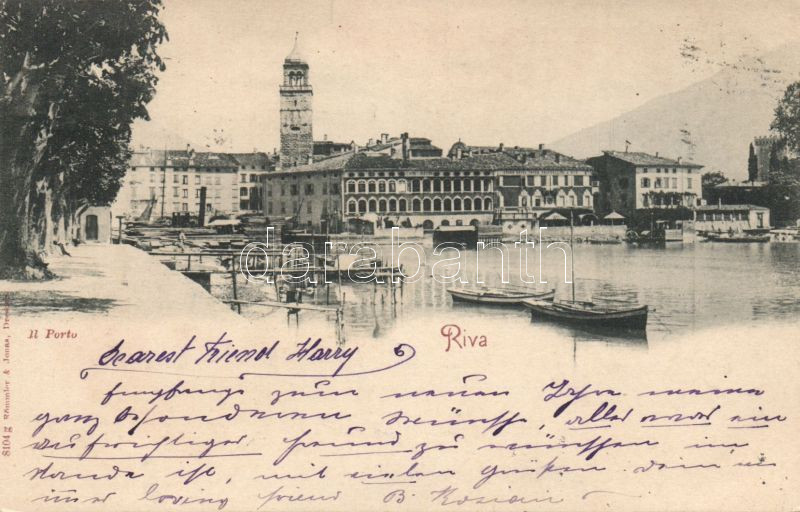 darabanth
Il Porto
Riva
8104 g Römmler & Jonas, Dresden
Dearest friend Harry
zum neuen Jahr meine
ganz besonderen Wünsche, alles was ein
aufrichtiger Freund zu wünschen im
Stande ist, mit vielen Grüßen dein
immer loving friend B.